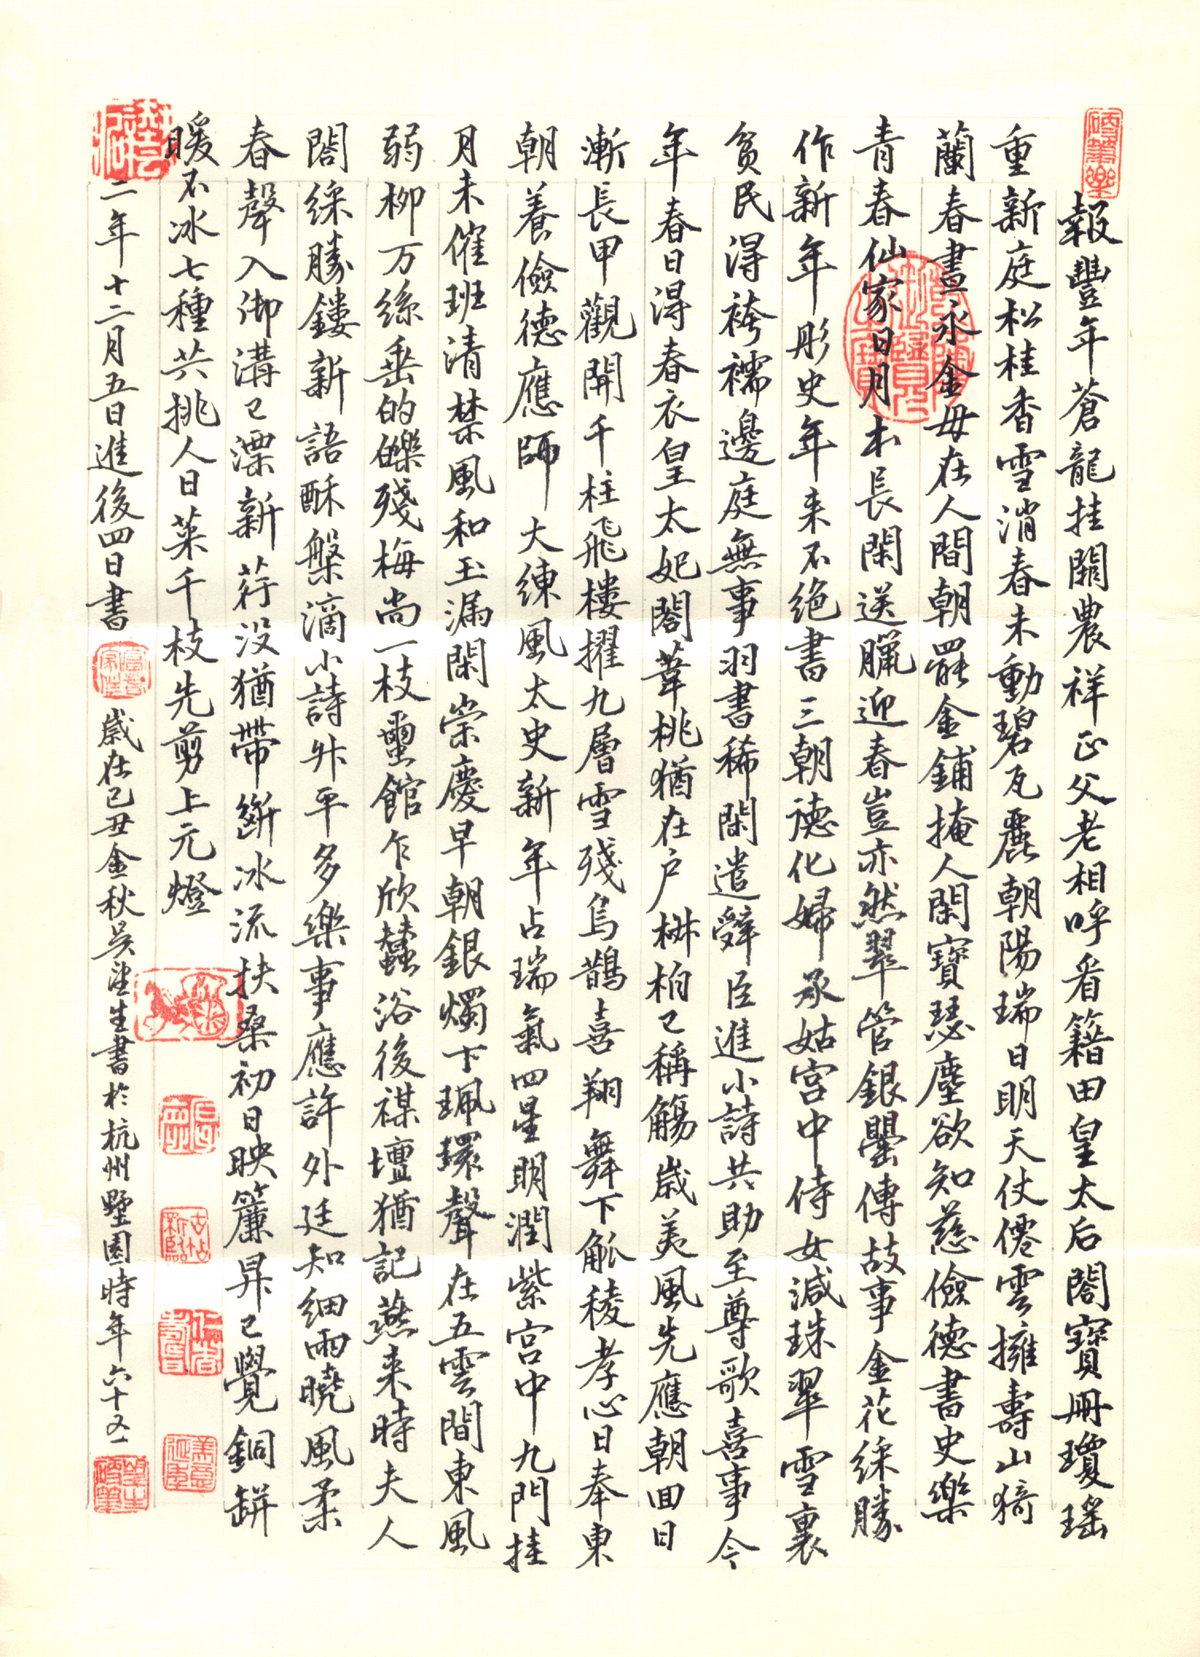 報豐年蒼龍挂闕農祥正父老相呼看籍田皇太后閤寶冊瓊瑶
重新庭松桂香雪消春未動碧瓦麗朝陽瑞日明天仗僊雲擁壽山猗
蘭春晝永金母在人間朝罷金鋪掩人閑寶瑟塵欲知慈儉德書史樂
青春仙家日月本長閑送臘迎春豈亦然翠管銀罌傳故事金花綵勝
作新年彤史年来不绝書三朝德化婦承姑宫中侍女減珠翠雪裏
貧民淂袴襦邊庭無事羽書稀閑遣辭臣進小詩共助至尊歌喜事今
年春日淂春衣皇太妃閤葦桃猶在户椒柏已稱觴歲美風先應朝回日
漸長甲觀開千柱飛樓擢九層雪殘烏鵲喜翔舞下觚稜孝心日奉東
朝養儉德應師大練風太史新年占瑞氣四星明潤紫宫中九門挂
月未催班清禁風和玉漏閑崇慶早朝銀燭下珮環聲在五雲間東風
弱柳万絲垂的皪殘梅尚一枝璽館乍欣蠶浴後禖壇猶記燕来時夫人
閤綵勝鏤新語酥槃滴小詩升平多樂事應許外廷知細雨曉風柔
春聲入御溝已漂新荇没猶帶斷冰流扶桑初日映簾昇已覺銅缾
暖不冰七種共挑人日菜千枝先剪上元燈
二年十二月五日進後四日書
歲在己丑金秋吴望生書於杭州墅園時年六十又一